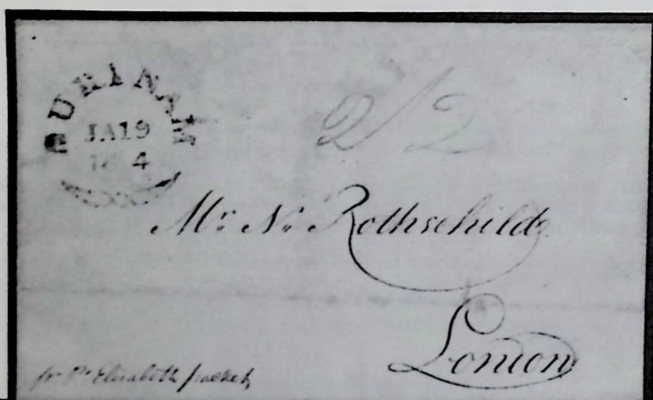 SURINAM
JA 19
2/2
Mr. N. Rothschild
London
pr. Ps. Elisabeth packet